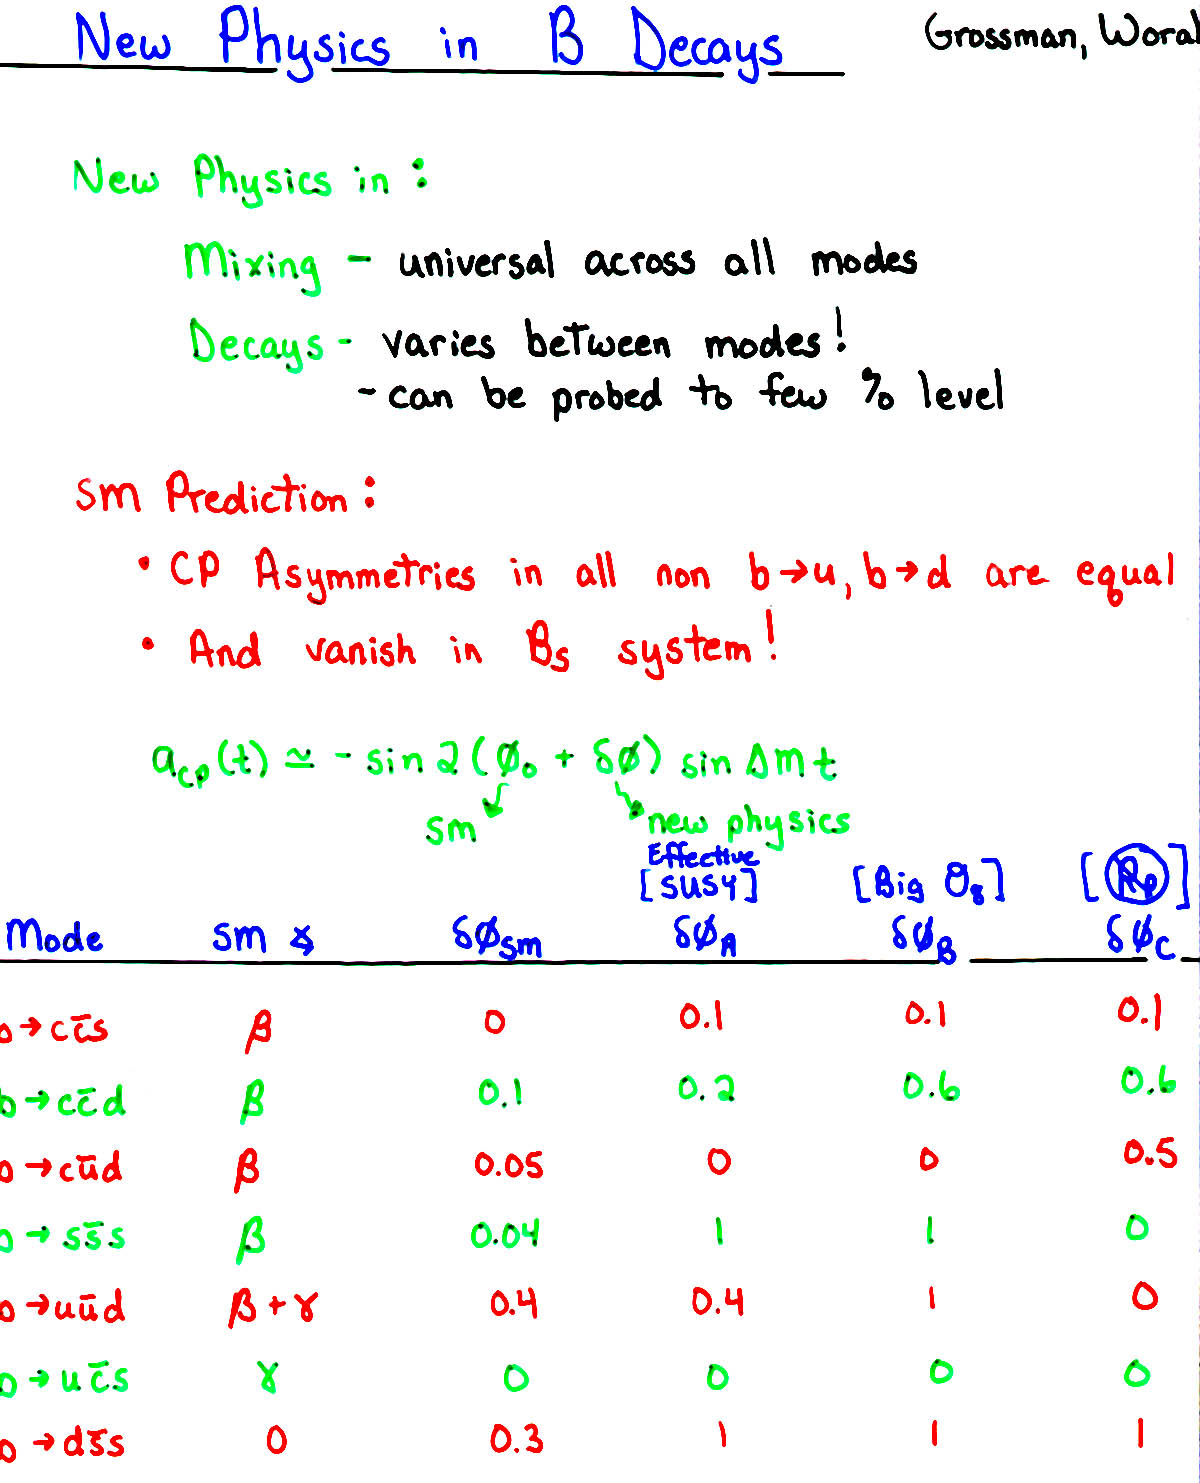 New Physics in B Decays
Grossman, Woral
New Physics in :
Mixing - universal across all modes
Decays - varies between modes!
- can be probed to few % level
Sm Prediction :
• CP Asymmetries in all non b→u, b→d are equal
• And vanish in Bs system!
a_CP(t) ≃ - sin 2(ϕ₀ + δϕ) sin Δmt
Sm new physics
Effective
[SUSY] [Big O₈] [R̸p]
Mode Sm ∡ δϕ_Sm δϕ_A δϕ_B δϕ_C
b→cc̄s β 0 0.1 0.1 0.1
b→cc̄d β 0.1 0.2 0.6 0.6
b→cūd β 0.05 0 0 0.5
b→ss̄s β 0.04 1 1 0
b→uūd β+γ 0.4 0.4 1 0
b→uc̄s γ 0 0 0 0
b→ds̄s 0 0.3 1 1 1